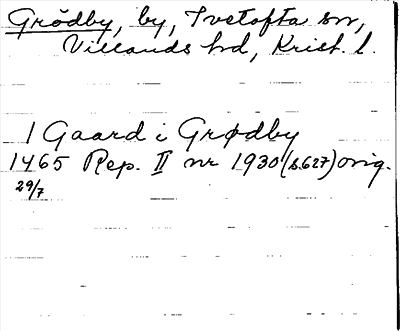 Grödby, by, Ivetofta sn,
Villands hd, Krist. l.
1 Gaard i Grødby
1465 Rep. II nr 1930 (s.627) orig.
29/7